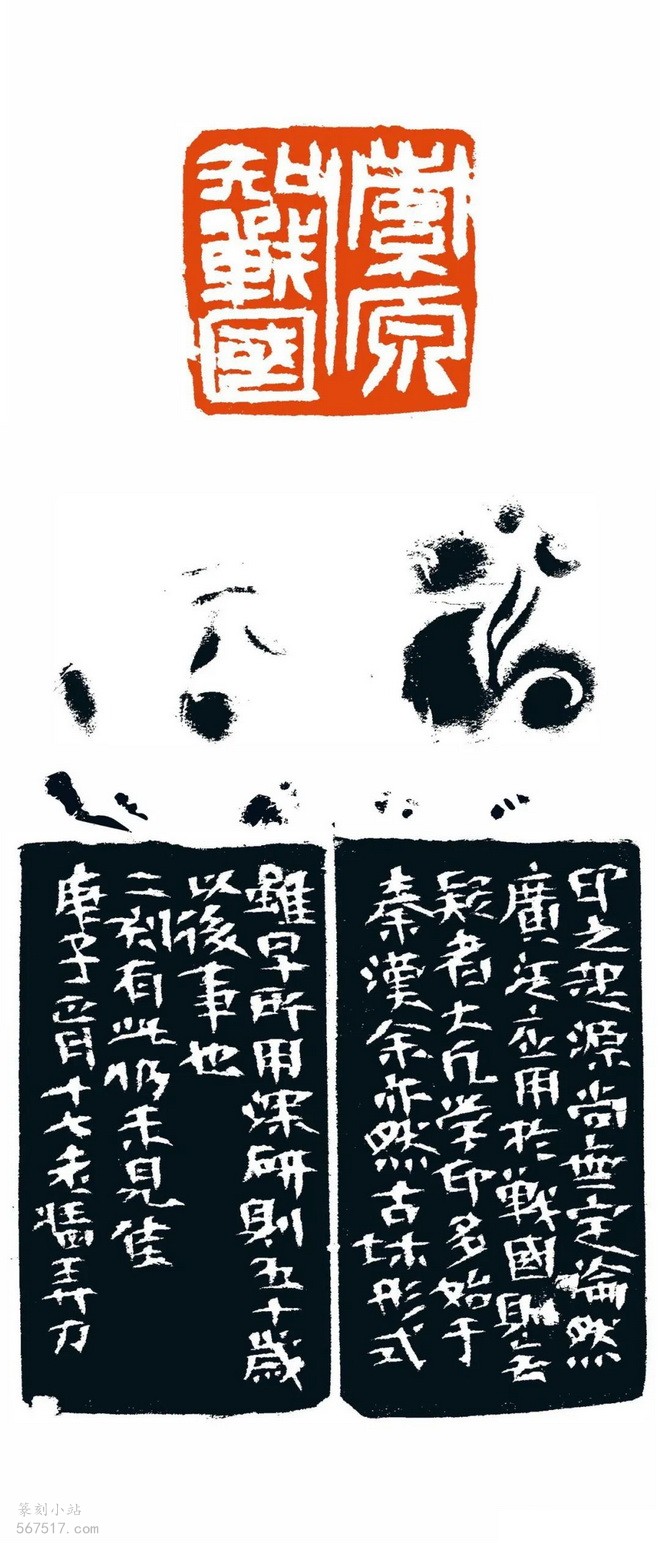 原
戰國
印之起源尚無定論然
廣泛應用於戰國則無
疑者大凡學印多始于
秦漢余亦然古鉨形式
雖早所用深研則五十歲
以後事也
二刻有此仍未見佳
庚子 月十七老 弄刀
篆刻小站
567517.com